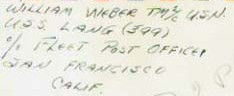 WILLIAM WEBER TM 2/c U.S.N.
U.S.S. LANG (399)
% FLEET POST OFFICE,
SAN FRANCISCO
CALIF.